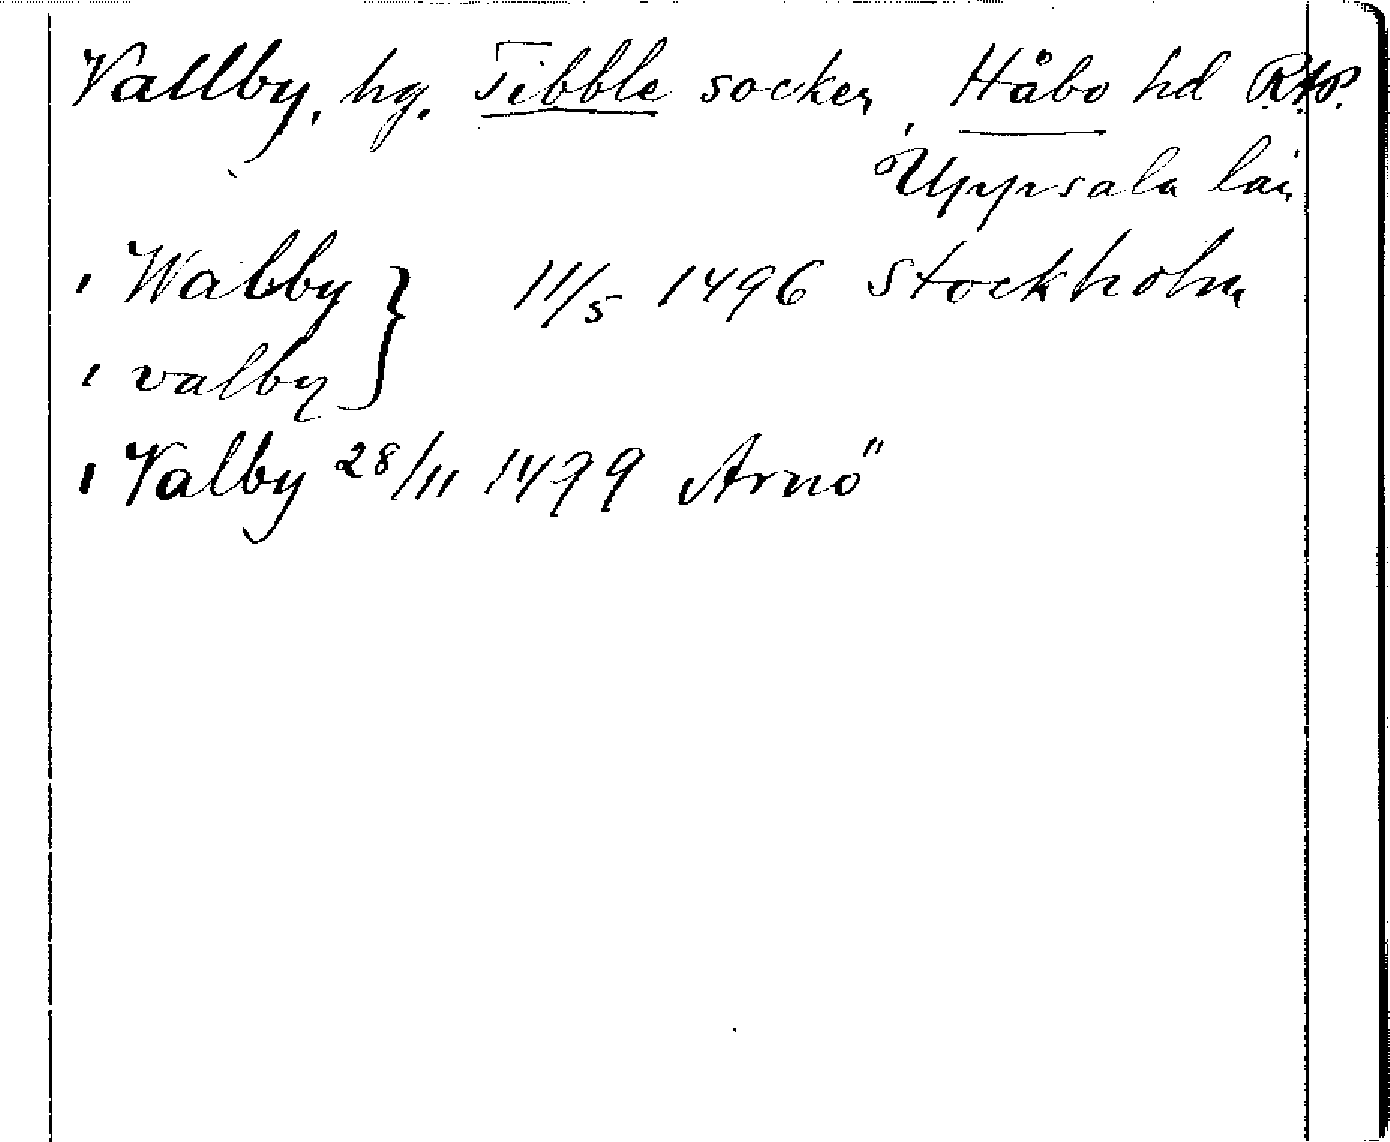 Vallby, hg. Tibble socken, Håbo hd RAP.
Uppsala län
i Wabby } 11/5 1496 Stockholm
i valby
i Valby 28/11 1499 Arnö